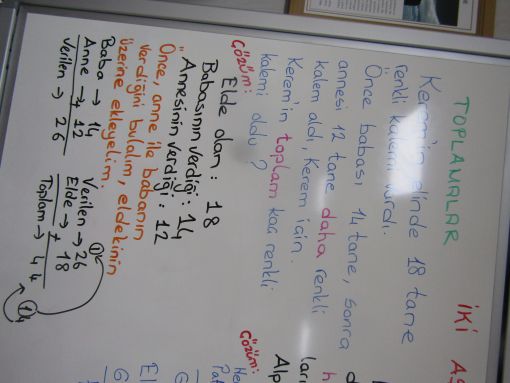 TOPLANANLAR
Kerem'in elinde 18 tane
renkli kalem vardı.
Önce babası 14 tane, sonra
annesi 12 tane daha renkli
kalem aldı, Kerem için.
Kerem'in toplam kaç renkli
kalemi oldu?
Çözüm:
Elde olan: 18
Babasının verdiği: 14
Annesinin verdiği: 12
Önce, anne ile babanın
verdiğini bulalım, eldekinin
üzerine ekleyelim.
Baba → 14
Anne → + 12
Verilen → 26
Verilen → 26
Elde → + 18
Toplam → 44
İKİ
Çözüm: